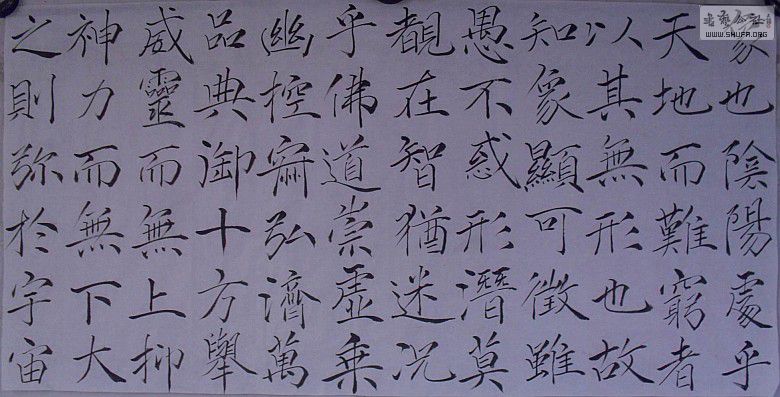 象也陰陽處乎
天地而難窮者
以其無形也故
知象顯可徵雖
愚不惑形潛莫
覩在智猶迷況
乎佛道崇虛乘
幽控寂弘濟萬
品典御十方舉
威靈而無上抑
神力而無下大
之則弥於宇宙
WWW.SHUFA.ORG